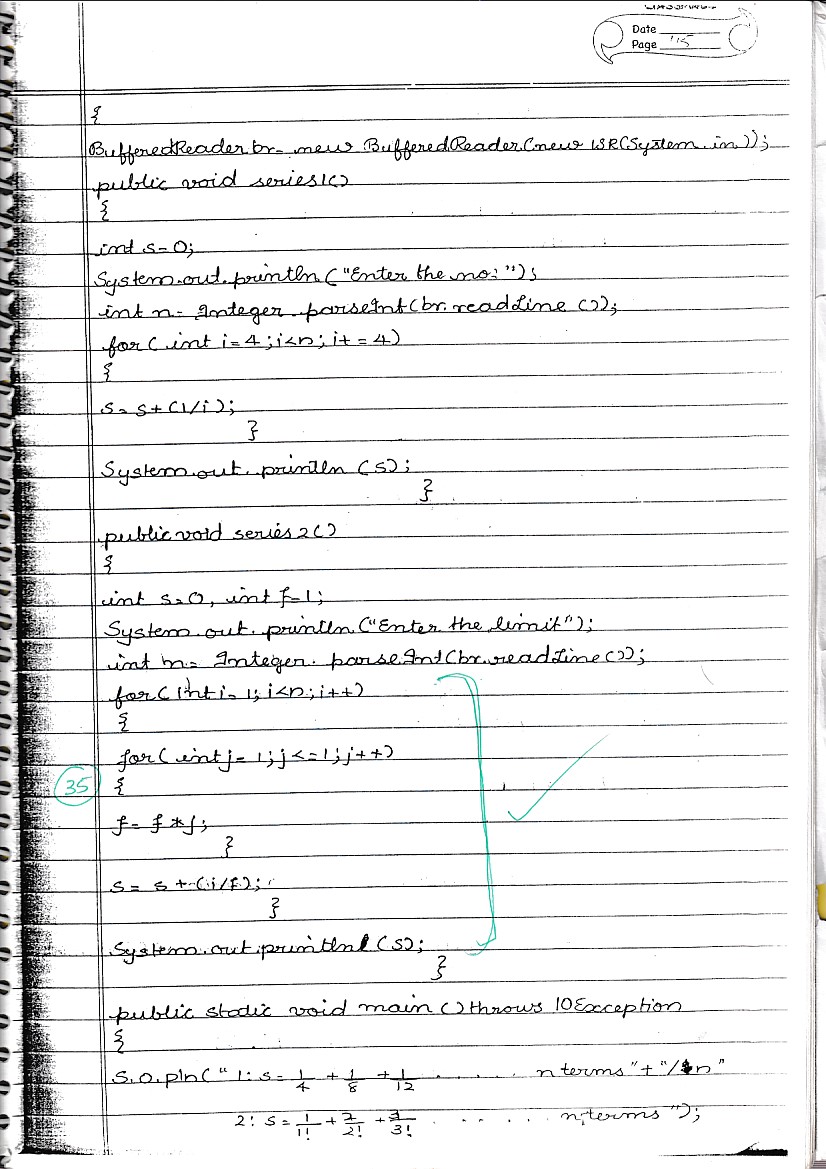 Date
Page 45
{
BufferedReader br= new BufferedReader(new ISR(System.in));
public void series1()
{
int s=0;
System.out.println("Enter the no:");
int n= Integer.parseInt(br.readLine());
for(int i=4;i<n;i+=4)
{
s= s+(1/i);
}
System.out.println(s);
}
public void series2()
{
int s=0, int f=1;
System.out.println("Enter the limit");
int n= Integer.parseInt(br.readLine());
for(int i=1;i<n;i++)
{
for(int j=1;j<=1;j++)
35 {
f= f*j;
}
s= s+(i/f);
}
System.out.println(s);
}
public static void main()throws IOException
{
S.O.pln("1: s= 1/4 + 1/8 + 1/12 ...... n terms"+"/n"
2: s= 1/1! + 2/2! + 3/3! ...... n terms");